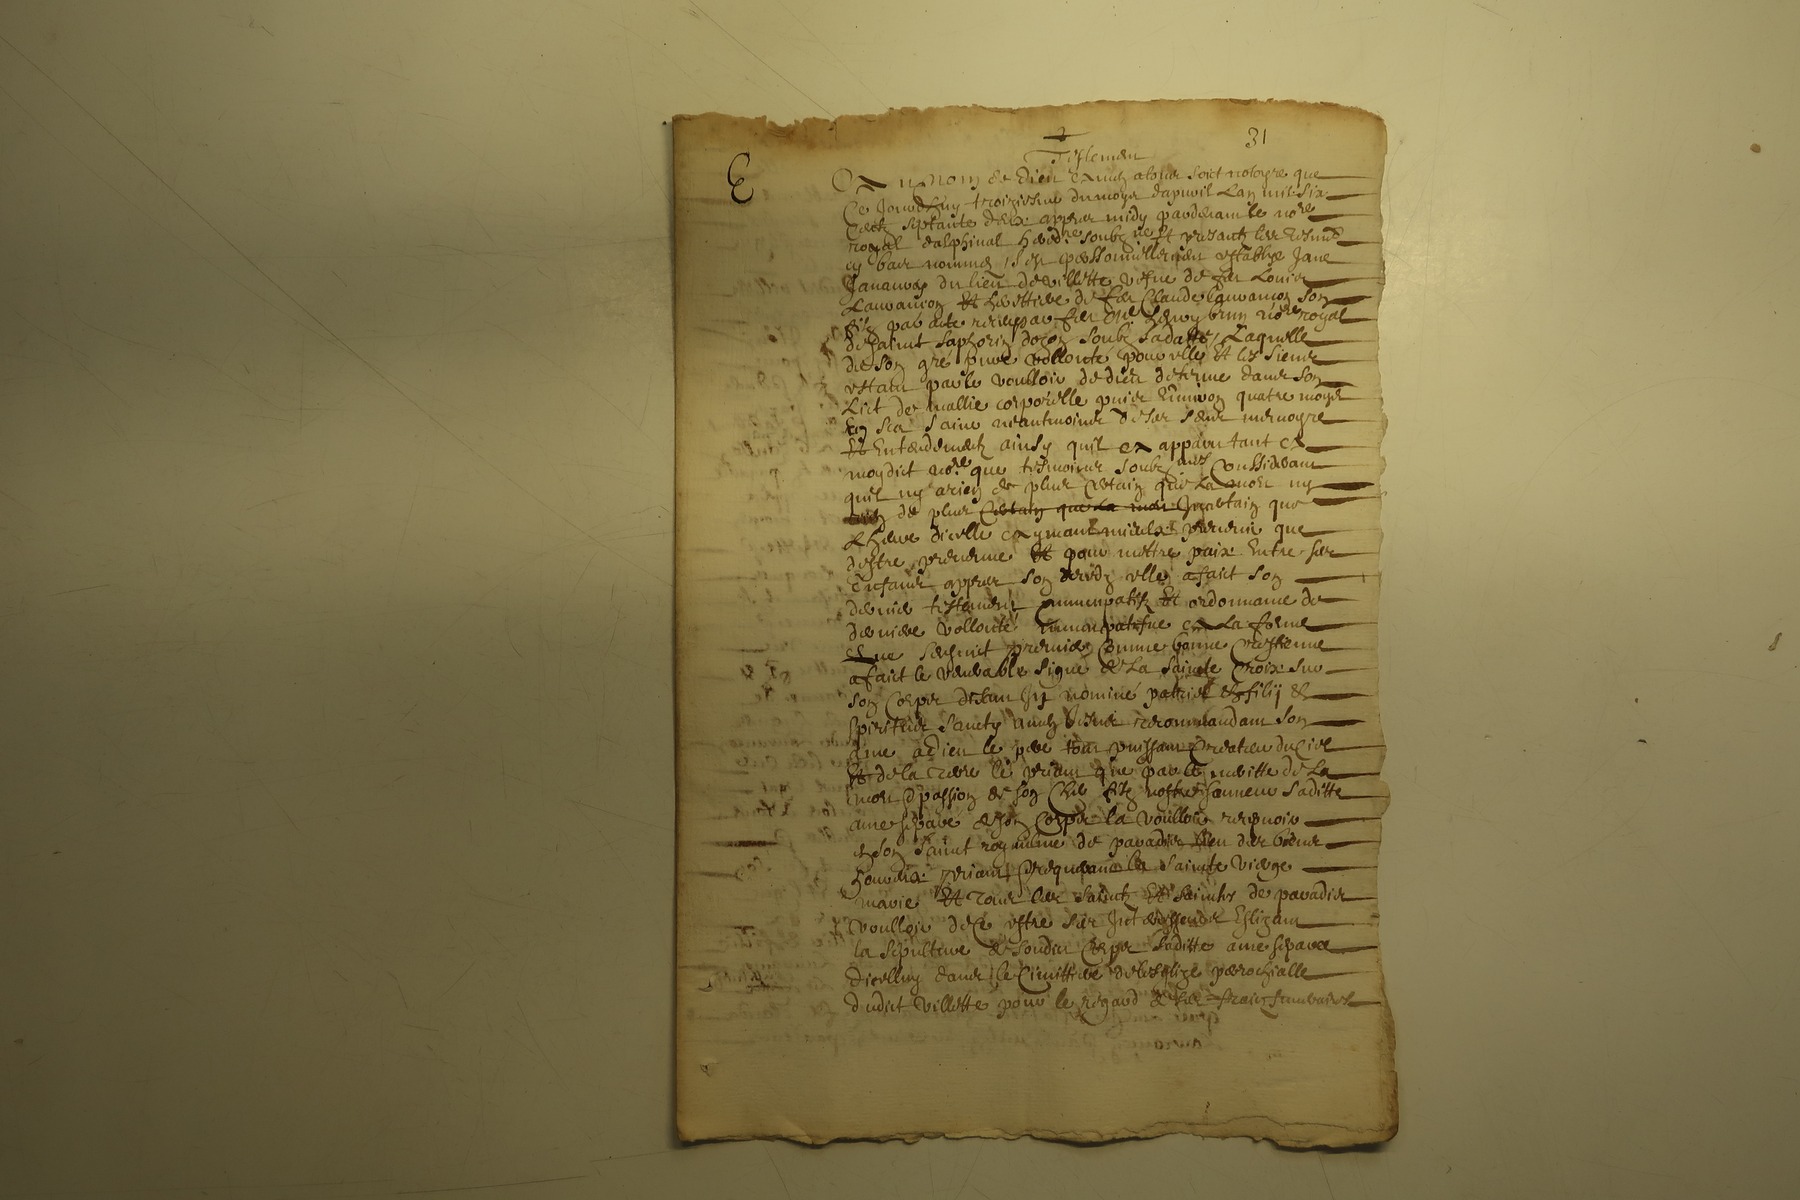 31
Testemen
Au nom de dieu a tous soict notoyre que
Ce Jourdhuy troiziesme du moys dapvril Lan mil six
Centz septante deux appres midy pardevant le nore
royal dalphinal hered.re soubz ne et presantz les tesmo
cy bas nommes sest personnellement establye Jane
du lieu de villette vefve de feu Louis
Lauvancon Et heretiere de feu Claude Lauvancon son
filz par acte receu par feu me henry brun nore royal
de saint saphorin dozon soubz sa datte Laquelle
de son gré pure vollonté pour elle et les siens
estant par le voulloir de dieu detenue dans son
Lict de mallie corporelle puis Environ quatre moys
En sea saine neantmoins de ses sens memoyre
Et Entendement ainsy quil a apparu tant a
moydict nore que tesmoins soubz nes Considerant
quil ny a rien de plus Certain que La mort ny
rien de plus Certain que La mort Incertain que
Lheure dicelle aymant mieulx prevenir que
destre prevenue Et pour mettre paix Entre ses
Enfans appres son deredz elle a faict son
dernier testement nuncupatif Et ordonnance de
derniere vollonté nuncupatifve en La forme
que sensuit premier Comme bonne Crestienne
a faict le venerable signe de La sainte Croix sur
son Corps disant In nomine patris & filij &
spiritus sancty amen recommandant son
ame a dieu le pere tout puissant Createur du Ciel
Et de la terre le priant que par le meritte de La
mort & passion de son Cher filz nostre seigneur saditte
ame separé de son Corps la voulloir recepvoir
en son saint royaulme de paradis lieu des biens
heureux priant la sainte vierge
marie Et tous les saintz Et saintes de paradis
voulloir de Ce estre ses Intercesseurs Eslizant
la sepulture de sondict Corps saditte ame separee
dicelluy dans le Cimittiere de lesglize parochialle
dudict villette pour le regard de ses frais funeraires